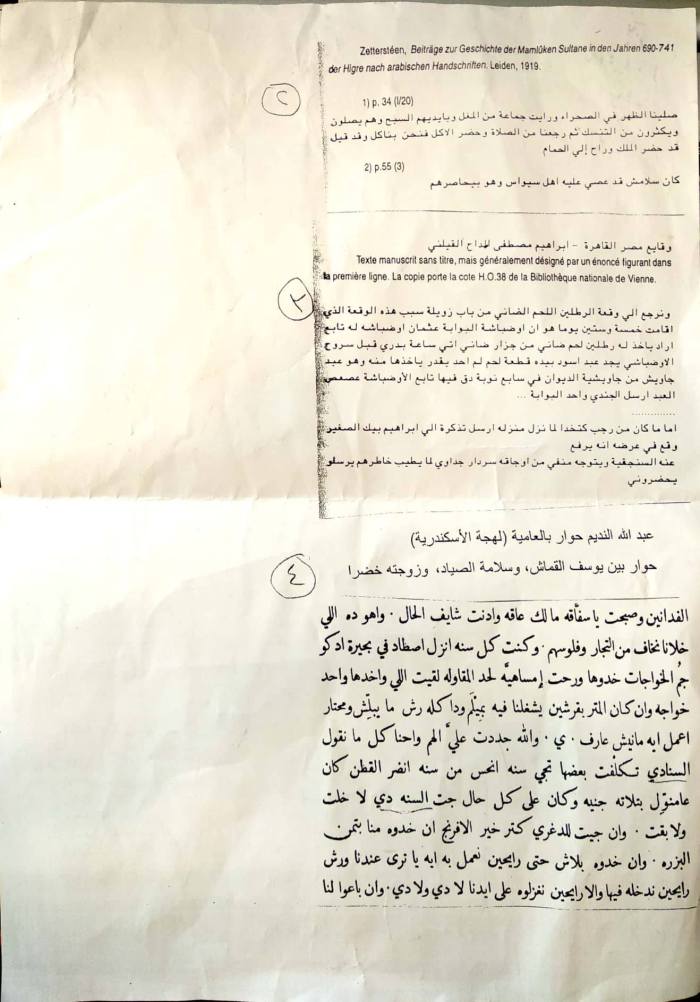 Zetterstéen, Beiträge zur Geschichte der Mamlūken Sultane in den Jahren 690-741
der Higre nach arabischen Handschriften. Leiden, 1919.
٢
1) p. 34 (I/20)
صلينا الظهر في الصحراء ورايت جماعة من المغل وبايديهم السبح وهم يصلون
ويكثرون من التنسك ثم رجعنا من الصلاة وحضر الاكل فنحن بناكل وقد قيل
قد حضر الملك وراح إلي الحمام
2) p.55 (3)
كان سلامش قد عصي عليه اهل سيواس وهو بيحاصرهم
وقايع مصر القاهرة - ابراهيم مصطفى المداح القيلني
Texte manuscrit sans titre, mais généralement désigné par un énoncé figurant dans
la première ligne. La copie porte la cote H.O.38 de la Bibliothèque nationale de Vienne.
٣
ونرجع الي وقعة الرطلين اللحم الضاني من باب زويلة سبب هذه الوقعة الذي
اقامت خمسة وستين يوما هو ان اوضباشة البوابة عثمان اوضباشه له تابع
اراد ياخذ له رطلين لحم ضاني من جزار ضاني اتي ساعة بدري قبل سروح
الاوضباشي يجد عبد اسود بيده قطعة لحم لم احد يقدر ياخذها منه وهو عبد
جاويش من جاويشية الديوان في سابع نوبة دق فيها تابع الأوضباشة عصعص
العبد ارسل الجندي واحد البوابة ...
..............
اما ما كان من رجب كتخدا لما نزل منزله ارسل تذكرة الي ابراهيم بيك الصغير
وقع في عرضه انه يرفع
عنه السنجقية ويتوجه منفي من اوجاقه سردار جداوي لما يطيب خاطرهم يرسلو
يحضروني
عبد الله النديم حوار بالعامية (لهجة الأسكندرية)
حوار بين يوسف القماش، وسلامة الصياد، وزوجته خضرا
٤
الفدانين وصبحت ياسقاقه مالك عاقه وادنت شايف الحال ٠ واهو ده اللي
خلانا نخاف من التجار وفلوسهم ٠ وكنت كل سنه انزل اصطاد في بحيرة ادكو
جم الخواجات خدوها ورحت إمساهيه لحد المقاوله لقيت اللي واخدها واحد
خواجه وان كان المتر بقرشين يشغلنا فيه بميلم ودا كله رش ما يبلش ومحتار
اعمل ايه مانيش عارف ٠ ي ٠ والله جددت علي الهم واحنا كل ما نقول
السنادي تكلفت بعضها تجي سنه انحس من سنه انضر القطن كان
عامنول بتلاته جنيه وكان على كل حال جت السنه دي لا خلت
ولا بقت ٠ وان جيت للدغري كتر خير الافرنج ان خدوه منا بتمن
البزره ٠ وان خدوه بلاش حتى رايحين نعمل به ايه يا ترى عندنا ورش
رايحين ندخله فيها والا رايحين نغزلوه على ايدنا لا دي ولا دي ٠ وان باعوا لنا